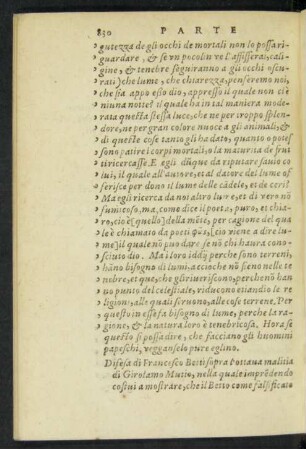 830 PARTE
„ gutezza de gli occhi de mortali non lo possa ri-
„ guardare, & se vn pocolin ve l'affisserai, cali-
„ gine, & tenebre seguiranno a gli occhi oscu-
„ rati) che lume, che chiarezza, penseremo noi,
„ che sia appo esso dio, appresso il quale non ci è
„ niuna notte? il quale ha in tal maniera mode-
„ rata questa stessa luce, che ne per troppo splen-
„ dore, ne per gran calore nuoce a gli animali, &
„ di queste cose tanto gli ha dato, quanto o potes-
„ sono patire i corpi mortali, o la maturità de frut
„ ti ricercasse. E egli dũque da riputar sauio co
„ lui, il quale all'autore, et al datore del lume of
„ ferisce per dono il lume delle cãdele, et de ceri?
„ Maegli ricerca da noi altro lume, et di vero nõ
„ fumicoso, ma, come dice il poeta, puro, et chia-
„ ro, cio è (quello) della mẽte, per cagione del qua
„ le è chiamato da poeti φως, (cio viene a dire lu-
„ me) il quale nõ puo dare se nõ chi haura cono-
„ sciuto dio. Ma i loro iddij perche sono terreni,
„ hãno bisogno di lumi, accioche nõ sieno nelle te
„ nebre, et que, che gli riueriscono, perche nõ han
„ no punto del celestiale, riducono etiandio le re
„ ligioni, alle quali seruono, alle cose terrene. Per
„ questo in essa fa bisogno di lume, perche la ra-
„ gione, & la natura loro è tenebricosa. Hora se
„ questo si possa dire, che facciano gli huomini
papeschi, vegganselo pure eglino.
Difesa di Francesco Betti sopra l'ottaua malitia
di Girolamo Mutio, nella quale imprẽdendo
costui a mostrare, che il Betto come falsificato